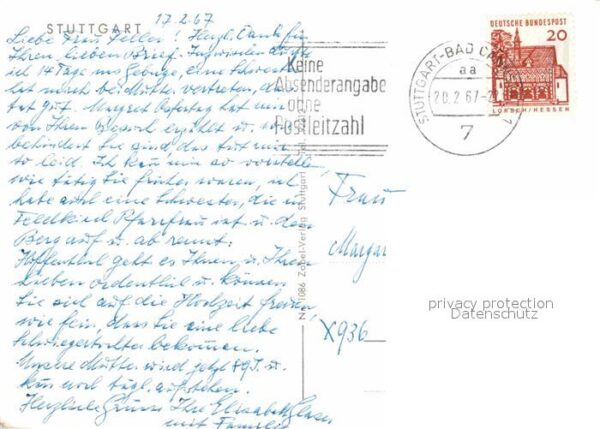 STUTTGART
17.2.67
Liebe Frau Feller! Herzl. Dank für
Ihren lieben Brief. Inzwischen durfte
ich 14 Tage ins Gebirge, eine Schwester
hat mich bei Mutter vertreten, das
tat gut. Margret hat mir
von Ihrem Besuch erzählt u. wie
behindert Sie sind, das tut mir
so leid. Ich kann mir so vorstellen,
wie tätig Sie früher waren, ich
habe auch eine Schwester, die in
Feldkirch Pfarrfrau ist u. den
Berg auf u. ab rennt.
Hoffentlich geht es Ihnen u. Ihren
Lieben ordentlich u. können
Sie sich auf die Hochzeit freuen,
wie fein, dass Sie eine liebe
Schwiegertochter bekommen.
Unsere Mutter wird jetzt 89 J. u.
kann noch tägl. aufstehen.
Herzliche Grüsse Ihre Elisabeth
mit Familie
Keine
Absenderangabe
ohne
Postleitzahl
STUTTGART-BAD
aa
20.2.67
7
DEUTSCHE BUNDESPOST
20
LORSCH/HESSEN
Nr. 1086 Zobel-Verlag Stuttgart
Frau
Margar
X936
privacy protection
Datenschutz